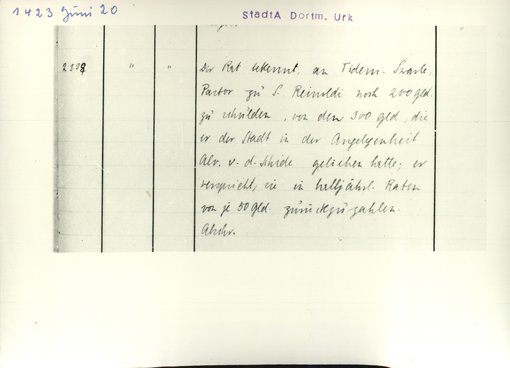 1423 Juni 20
StadtA Dortm. Urk
2338 " "
Der Rat bekennt, an Tidem. Swarte,
Pastor zu S. Reinoldi noch 200 gld.
zu schulden, von den 300 gld, die
er der Stadt in der Angelegenheit
Alv. v. d. geliehen hatte; er
verspricht, sie in halbjährl. Raten
von je 50 gld. zurückzuzahlen.
Abschr.